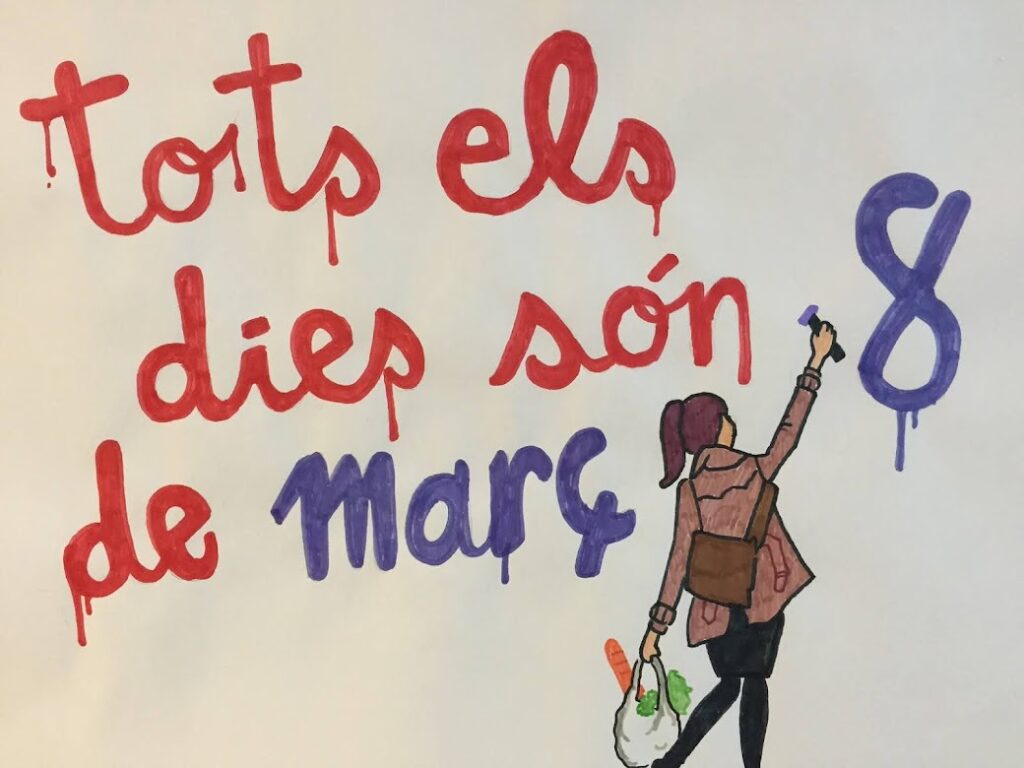 tots els
dies són 8
de març